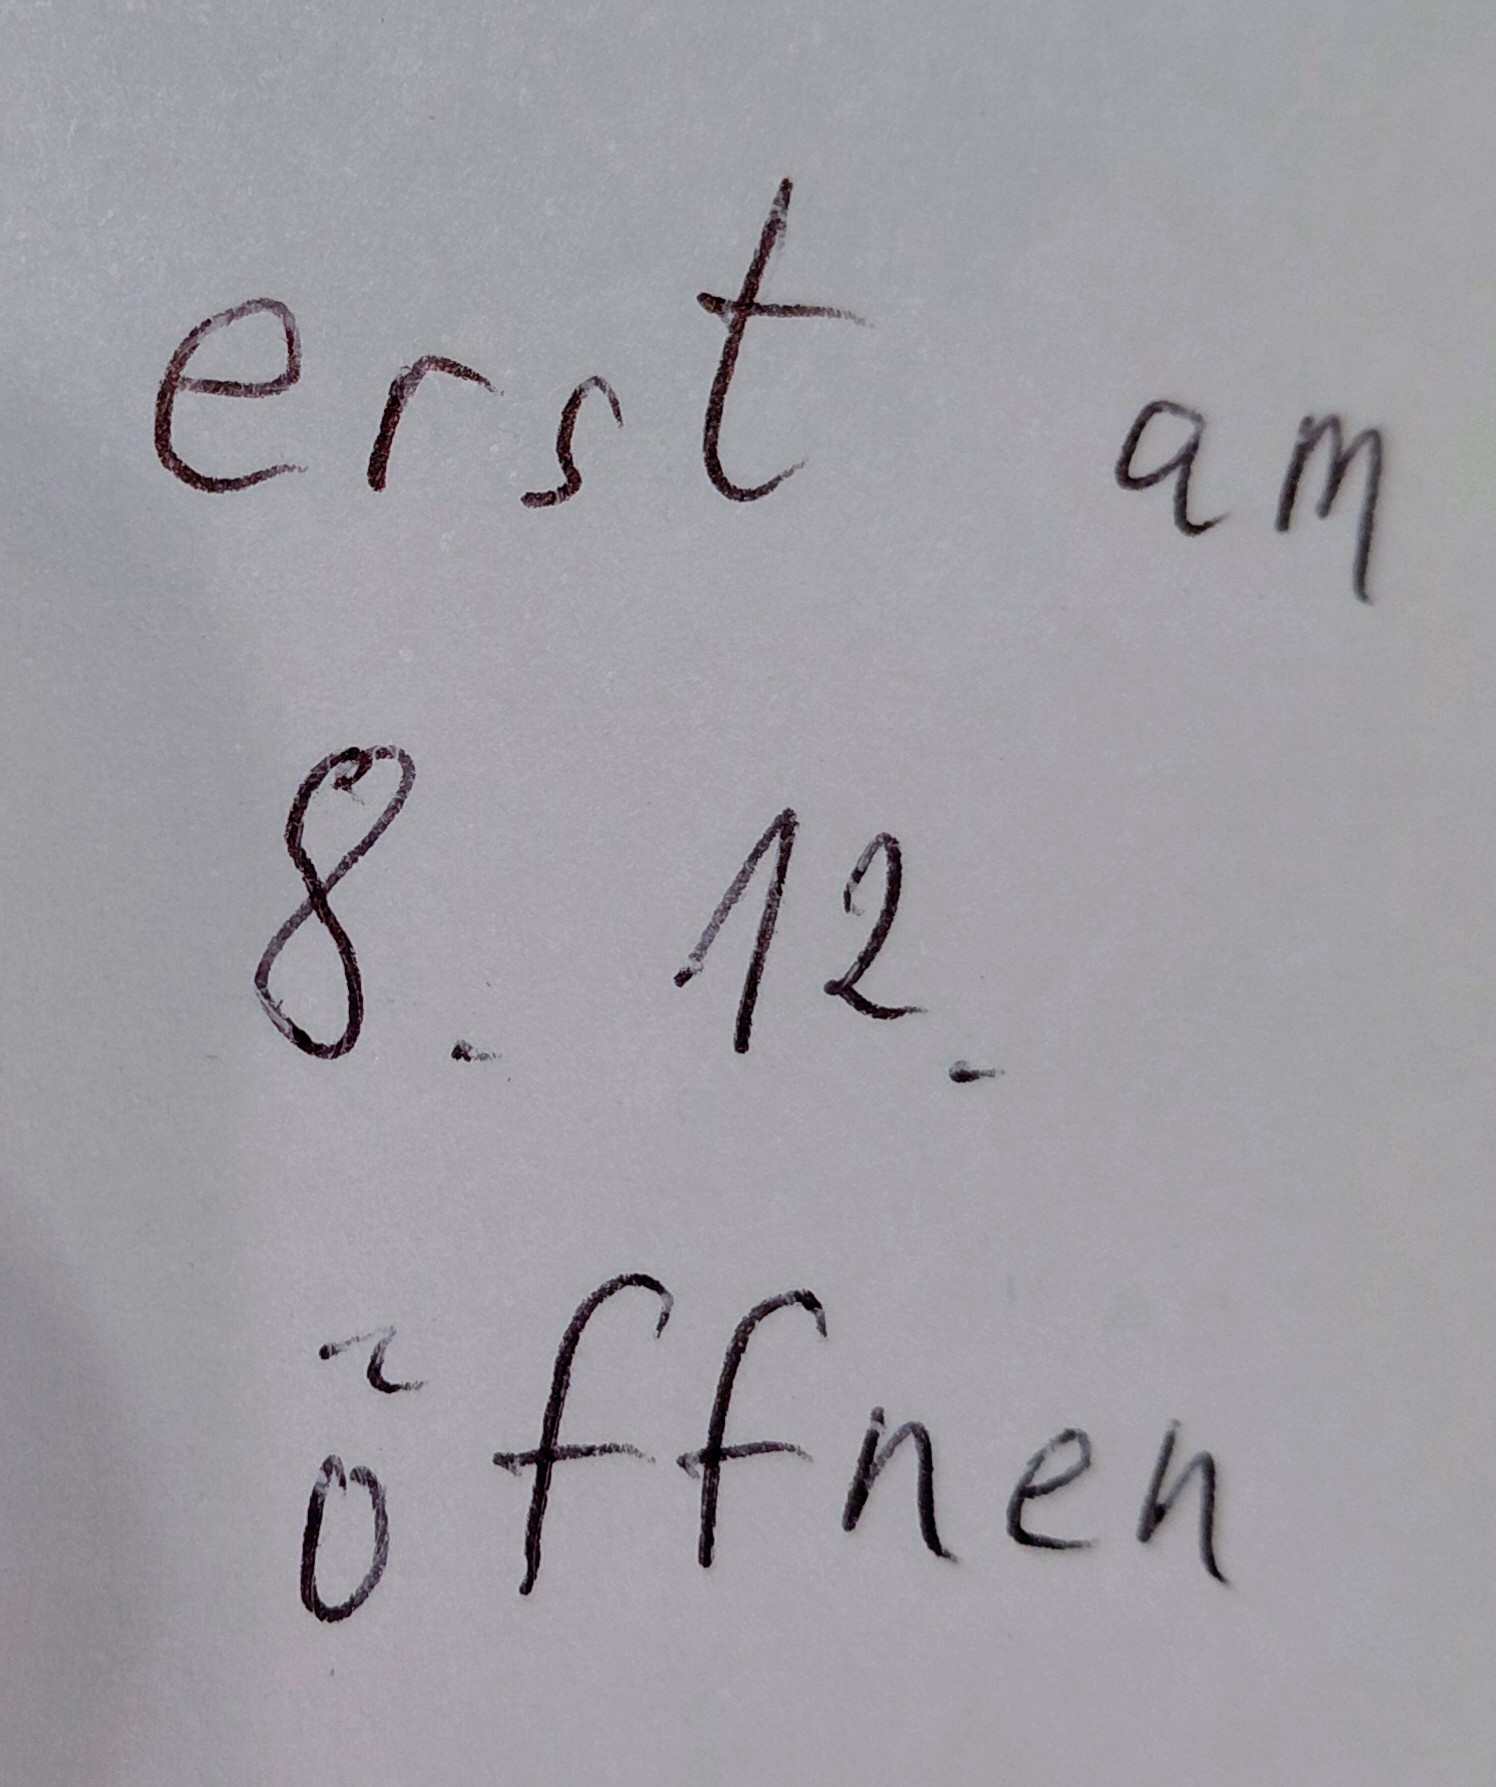 erst am
8. 12.
öffnen